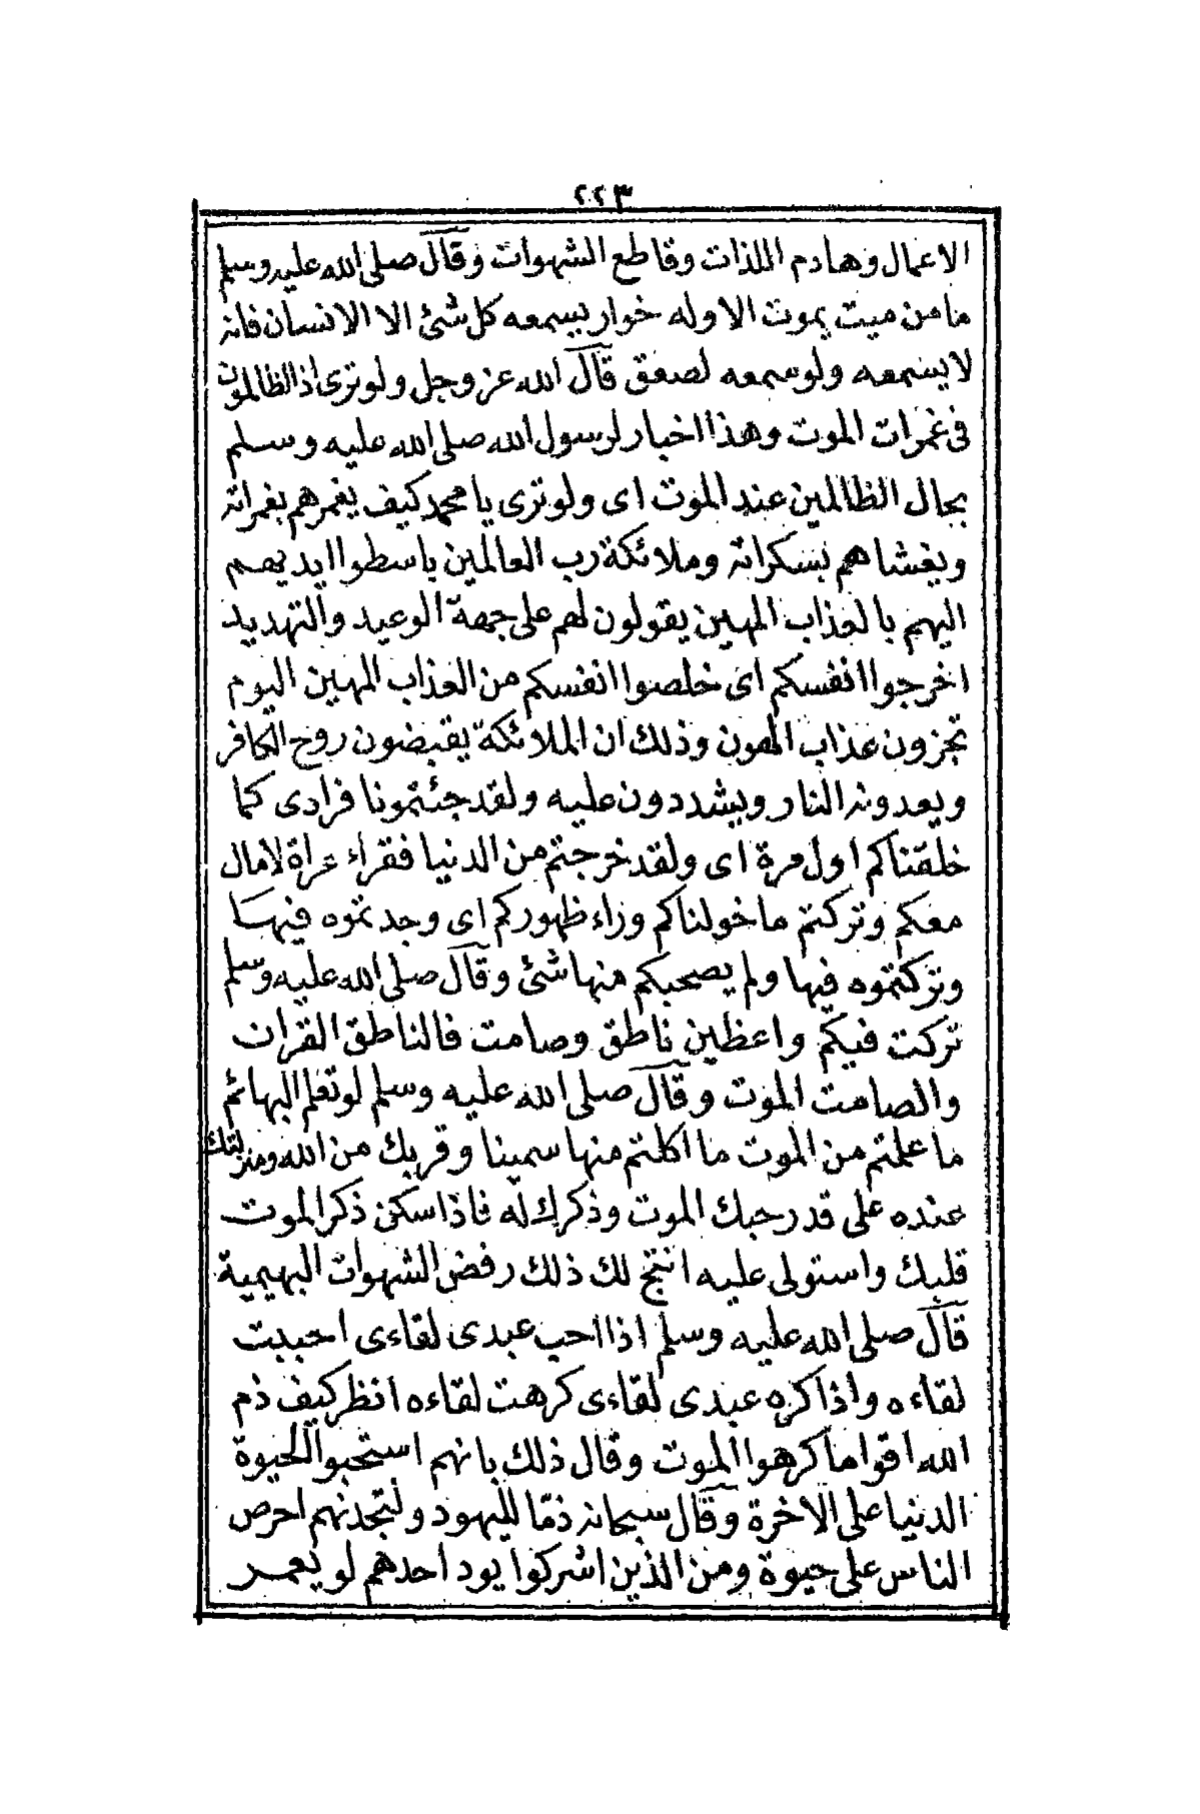 ٢٢٣
الاعمال وهادم اللذات وقاطع الشهوات وقال صلى الله عليه وسلم
ما من ميت يموت الا وله خوار يسمعه كل شئ الا الانسان فانه
لا يسمعه ولو سمعه لصعق قال الله عز وجل ولو ترى اذ الظالمون
فى غمرات الموت وهذا اخبار لرسول الله صلى الله عليه وسلم
بحال الظالمين عند الموت اى ولو ترى يا محمد كيف يغمرهم بغمراته
ويغشاهم بسكراته وملائكة رب العالمين باسطوا ايديهم
اليهم بالعذاب المهين يقولون لهم على جهة الوعيد والتهديد
اخرجوا انفسكم اى خلصوا انفسكم من العذاب المهين اليوم
تجزون عذاب الهون وذلك ان الملائكة يقبضون روح الكافر
ويعدونه النار ويشددون عليه ولقد جئتمونا فرادى كما
خلقناكم اول مرة اى ولقد خرجتم من الدنيا فقراء عراة لا مال
معكم وتركتم ما خولناكم وراء ظهوركم اى وجدتموه فيها
وتركتموه فيها ولم يصحبكم منها شئ وقال صلى الله عليه وسلم
تركت فيكم واعظين ناطق وصامت فالناطق القران
والصامت الموت وقال صلى الله عليه وسلم لو تعلم البهائم
ما علمتم من الموت ما اكلتم منها سمينا وقربك من الله ومنزلتك
عنده على قدر حبك الموت وذكرك له فاذا سكن ذكر الموت
قلبك واستولى عليه انتج لك ذلك رفض الشهوات البهيمية
قال صلى الله عليه وسلم اذا احب عبدى لقاءى احببت
لقاءه واذا كره عبدى لقاءى كرهت لقاءه انظر كيف ذم
الله اقواما كرهوا الموت وقال ذلك بانهم استحبوا الحيوة
الدنيا على الاخرة وقال سبحانه ذمّا لليهود ولتجدنهم احرص
الناس على حيوة ومن الذين اشركوا يود احدهم لو يعمر